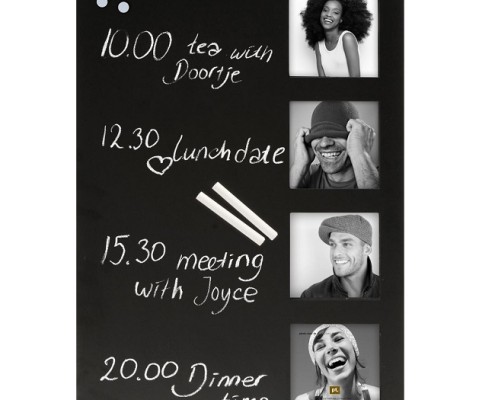 10.00 tea with
Doortje
12.30 lunchdate
15.30 meeting
with Joyce
20.00 Dinner
time